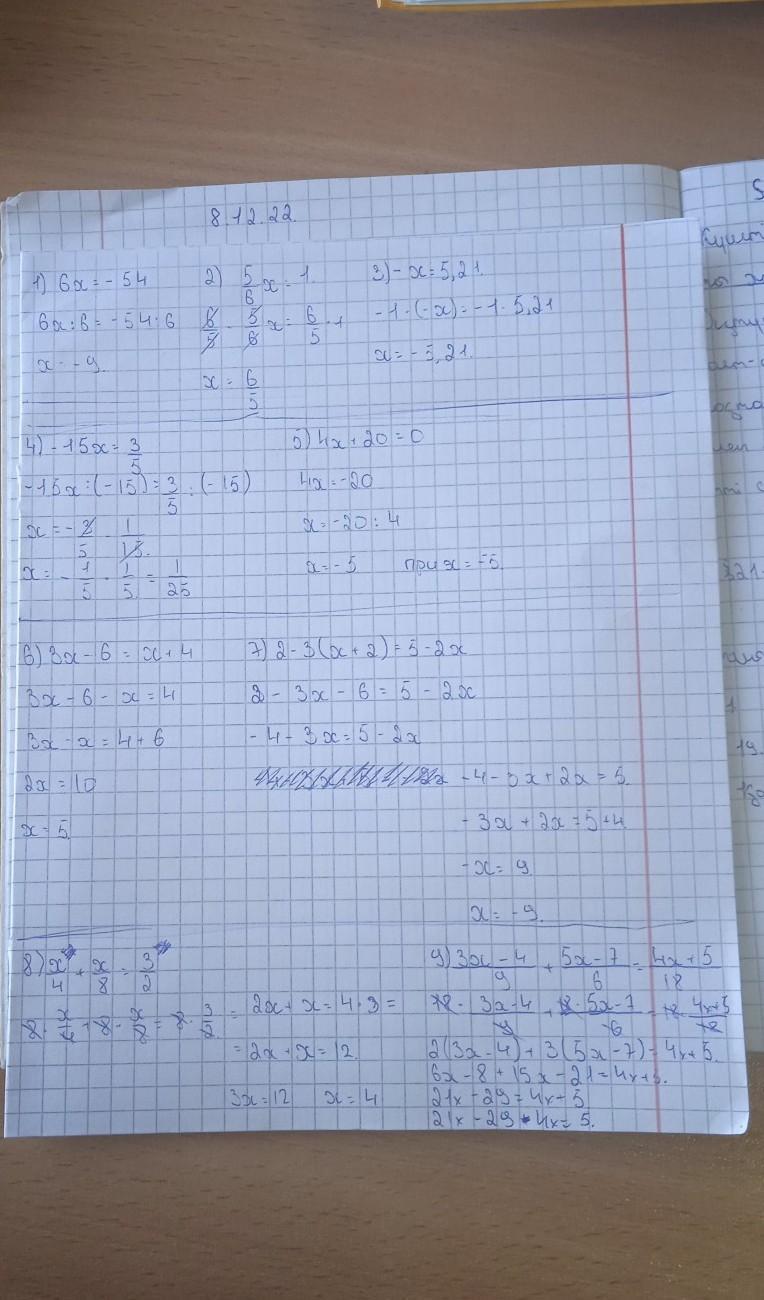 8.12.22.
1) 6x = - 54
6x : 6 = - 54 : 6
x = - 9.
2) 5/6 x = 1.
6/5 · 5/6 x = 6/5 · 1
x = 6/5
3) - x = 5,21.
-1 · (-x) = -1 · 5,21
x = - 5,21.
4) - 15x = 3/5
-15x : (-15) = 3/5 : (-15)
x = - 3/5 · 1/15.
x = - 1/5 · 1/5 = 1/25
5) 4x + 20 = 0
4x = -20
x = -20 : 4
x = - 5 при x = -5.
6) 3x - 6 = x + 4
3x - 6 - x = 4
3x - x = 4 + 6
2x = 10
x = 5.
7) 2 - 3(x + 2) = 5 - 2x
2 - 3x - 6 = 5 - 2x
- 4 - 3x = 5 - 2x
- 4 - 3x + 2x = 5.
- 3x + 2x = 5 + 4.
-x = 9.
x = - 9.
8) x/4 + x/8 = 3/2
8 · x/4 + 8 · x/8 = 8 · 3/2 = 2x + x = 4 · 3 =
= 2x + x = 12.
3x = 12 x = 4
9) 3x - 4/9 + 5x - 7/6 = 4x + 5/18
18 · 3x-4/9 + 18 · 5x-7/6 = 18 · 4x+5/18
2(3x - 4) + 3(5x - 7) = 4x + 5.
6x - 8 + 15x - 21 = 4x + 5.
21x - 29 = 4x + 5
21x - 29 - 4x = 5.